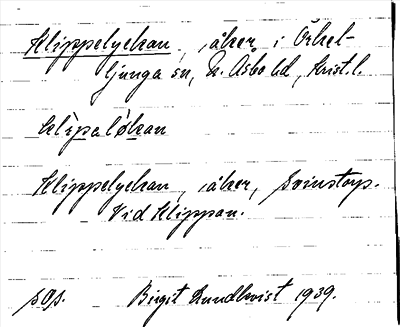 Klippelyckan, åker i Örkel-
ljunga sn, N. Åsbo hd, Krist. l.
klìpaløkan
Klippelyckan, åker, Svinstorp.
Vid Klippan.
sOp. Birgit Lundkvist 1939.